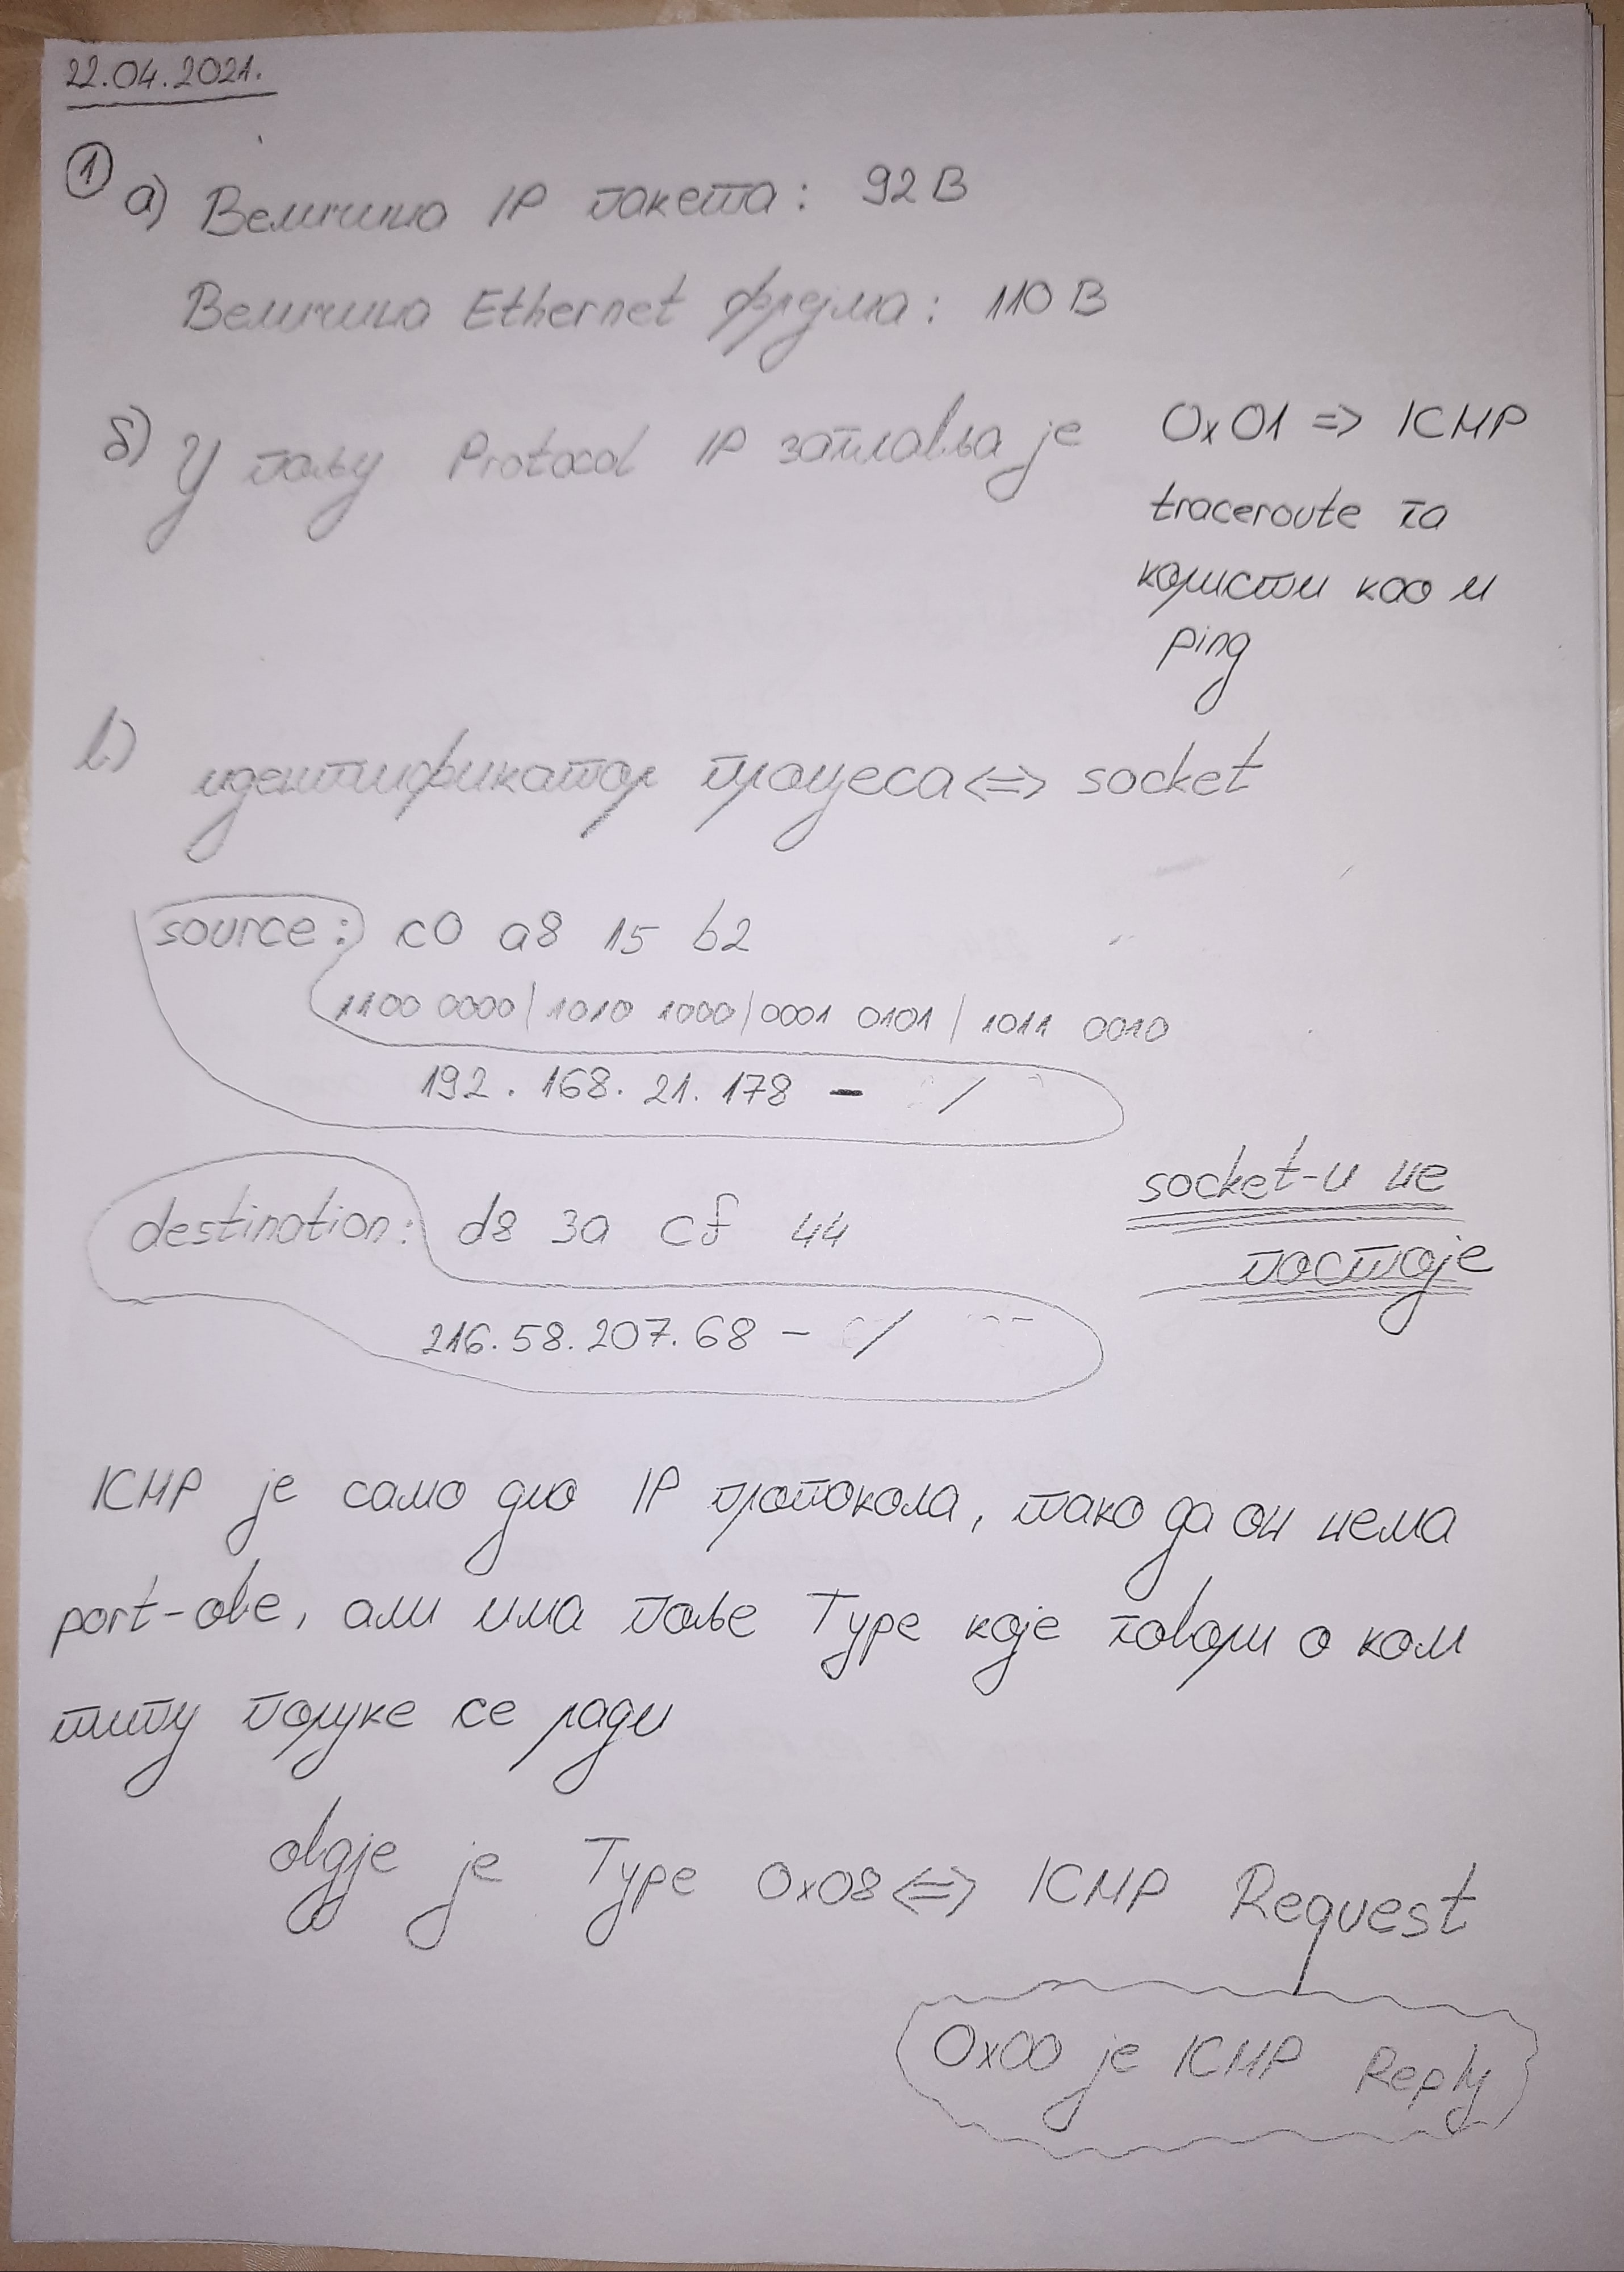 22.04.2021.
1 а) Величина IP пакета: 92 B
Величина Ethernet фрејма: 110 B
б) У пољу Protocol IP заглавља је 0x01 => ICMP
traceroute га
користи као и
ping
в) идентификатор процеса <=> socket
source: c0 a8 15 b2
1100 0000 | 1010 1000 | 0001 0101 | 1011 0010
192. 168. 21. 178 - /
destination: d8 3a cf 44
216. 58. 207. 68 - /
socket-и не
постоје
ICMP је само дио IP протокола, тако да он нема
port-ове, али има поље Type које говори о ком
типу поруке се ради
овдје је Type 0x08 <=> ICMP Request
0x00 је ICMP Reply